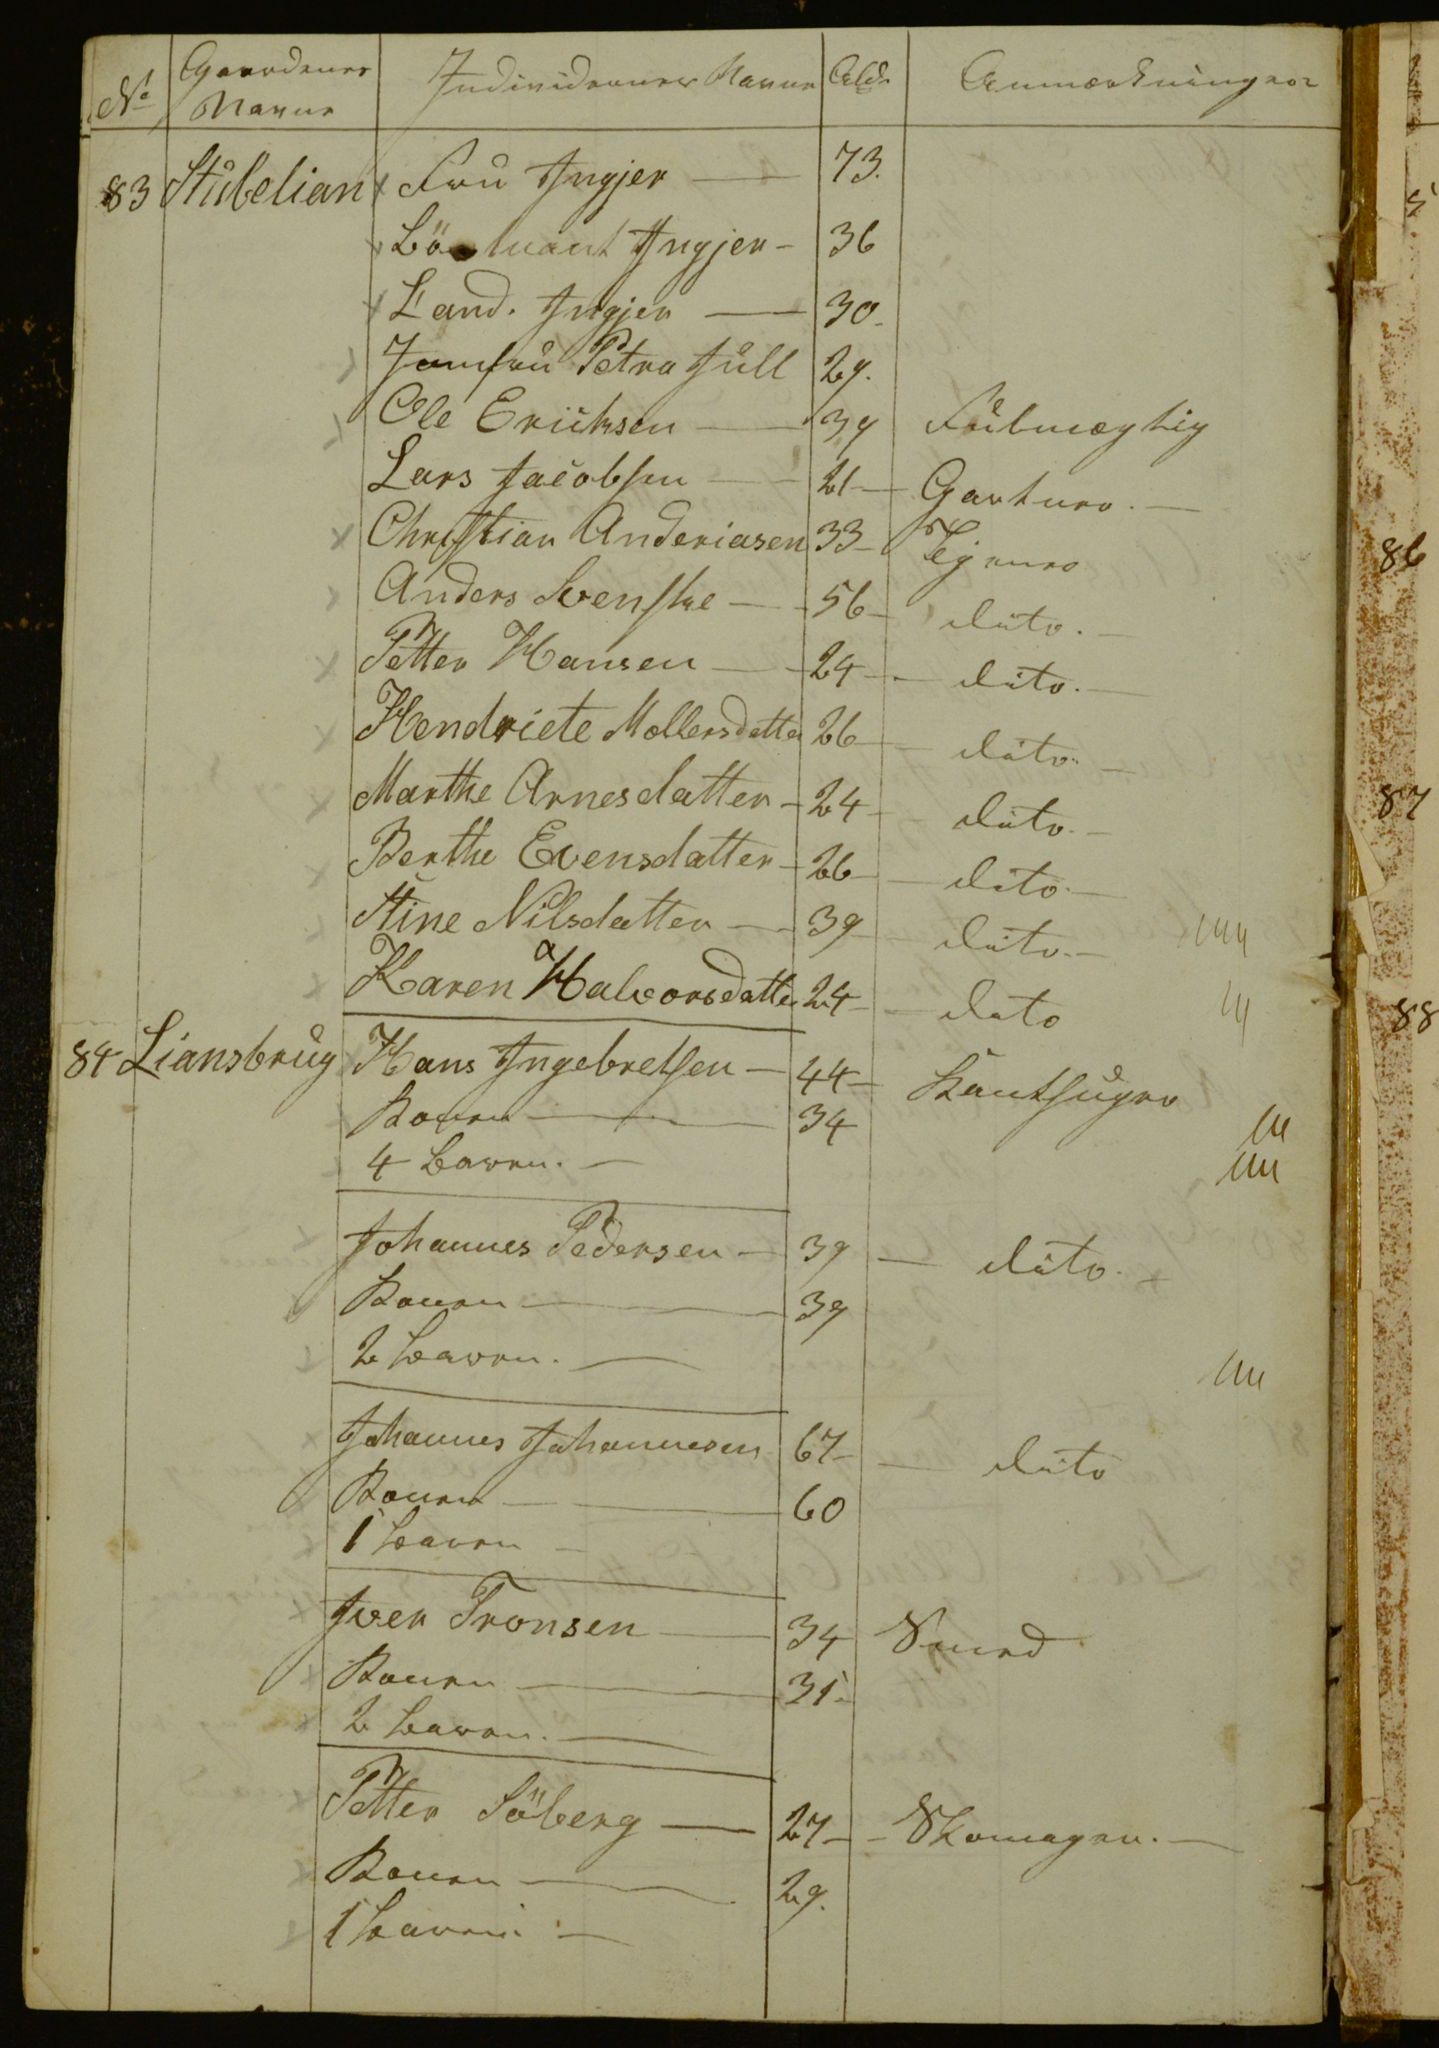 No Gaardenes Navne Individernes Navne Ald. Anmærkninger
83 Stubelian Fru Ingjer 73.
Ingjer 36
Cand. Ingjer 30
Jomfru Petra Jull 29.
Ole Eriksen 39 Fuldmægtig
Lars Jacobsen 21 Gartner.
Christian Anderiasen 33 Tjener
Anders Svenske 56 dito.
Petter Hansen 24 dito.
Hendriete Mollersdatter 26 dito.
Marthe Arnesdatter 24 dito.
Berthe Evensdatter 26 dito.
Stine Nilsdatter 39 dito.
Karen Halvorsdatter 24 dito
84 Liansbrug Hans Ingebretsen 44 Kantsuger
Konen 34
4 Børen.
Johannes Pedersen 39 dito.
Konen 39
2 Børen.
Johannes Johannesen 67 dito
Konen 60
1 Børen
Iver Tronsen 34 Smed
Konen 31
2 Børen.
Petter Söberg 27 Skomager.
Konen 29.
1 Børen
86
87
88